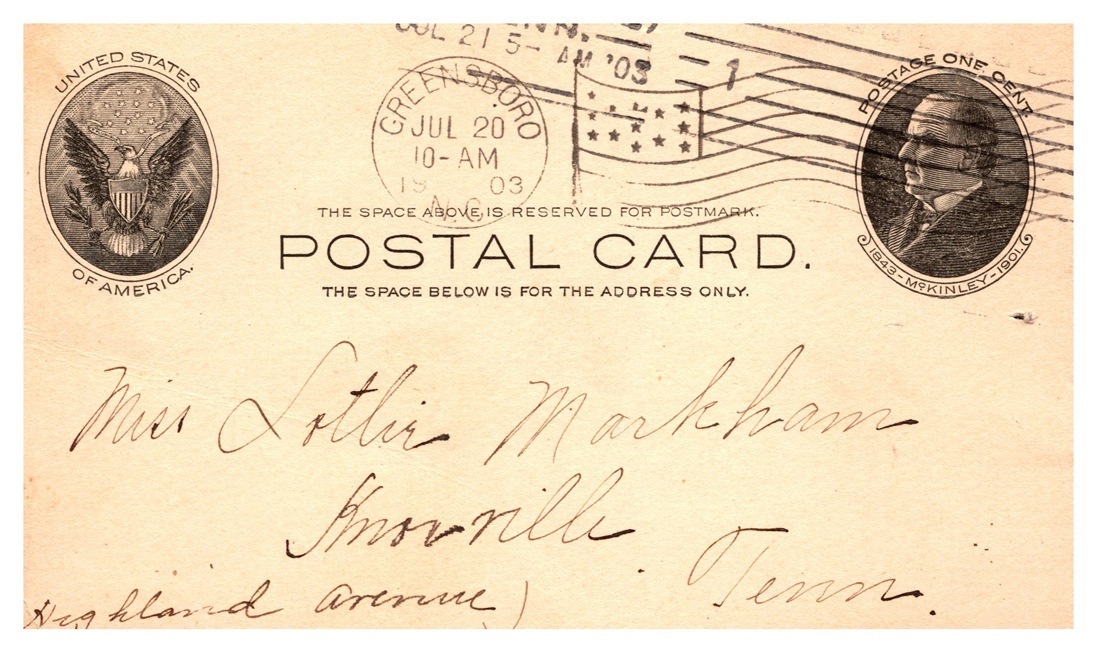 UNITED STATES
OF AMERICA.
TENN.
JUL 21 5-AM '03
1
GREENSBORO
JUL 20
10-AM
19 03
N.C.
POSTAGE ONE CENT.
1843-McKINLEY-1901.
THE SPACE ABOVE IS RESERVED FOR POSTMARK.
POSTAL CARD.
THE SPACE BELOW IS FOR THE ADDRESS ONLY.
Miss Lottie Markham
Knoxville
Tenn.
Highland Avenue)